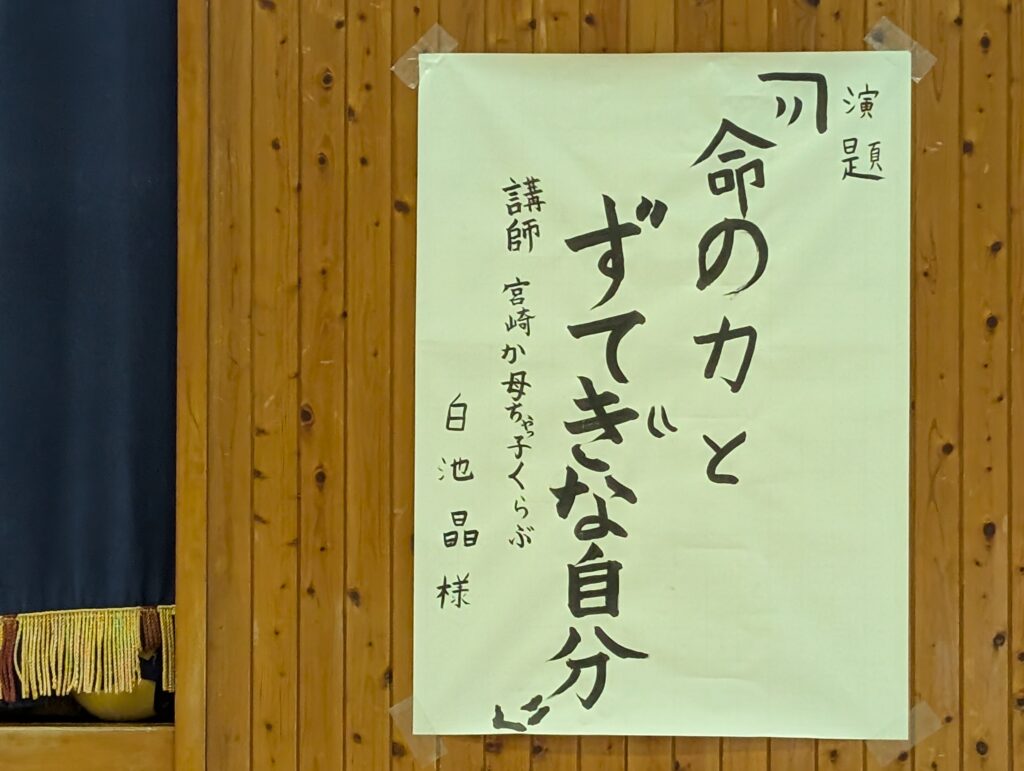 演題
「命の力と
〝すてき〟な自分」
講師 宮崎か母ちゃっ子くらぶ
白池晶様